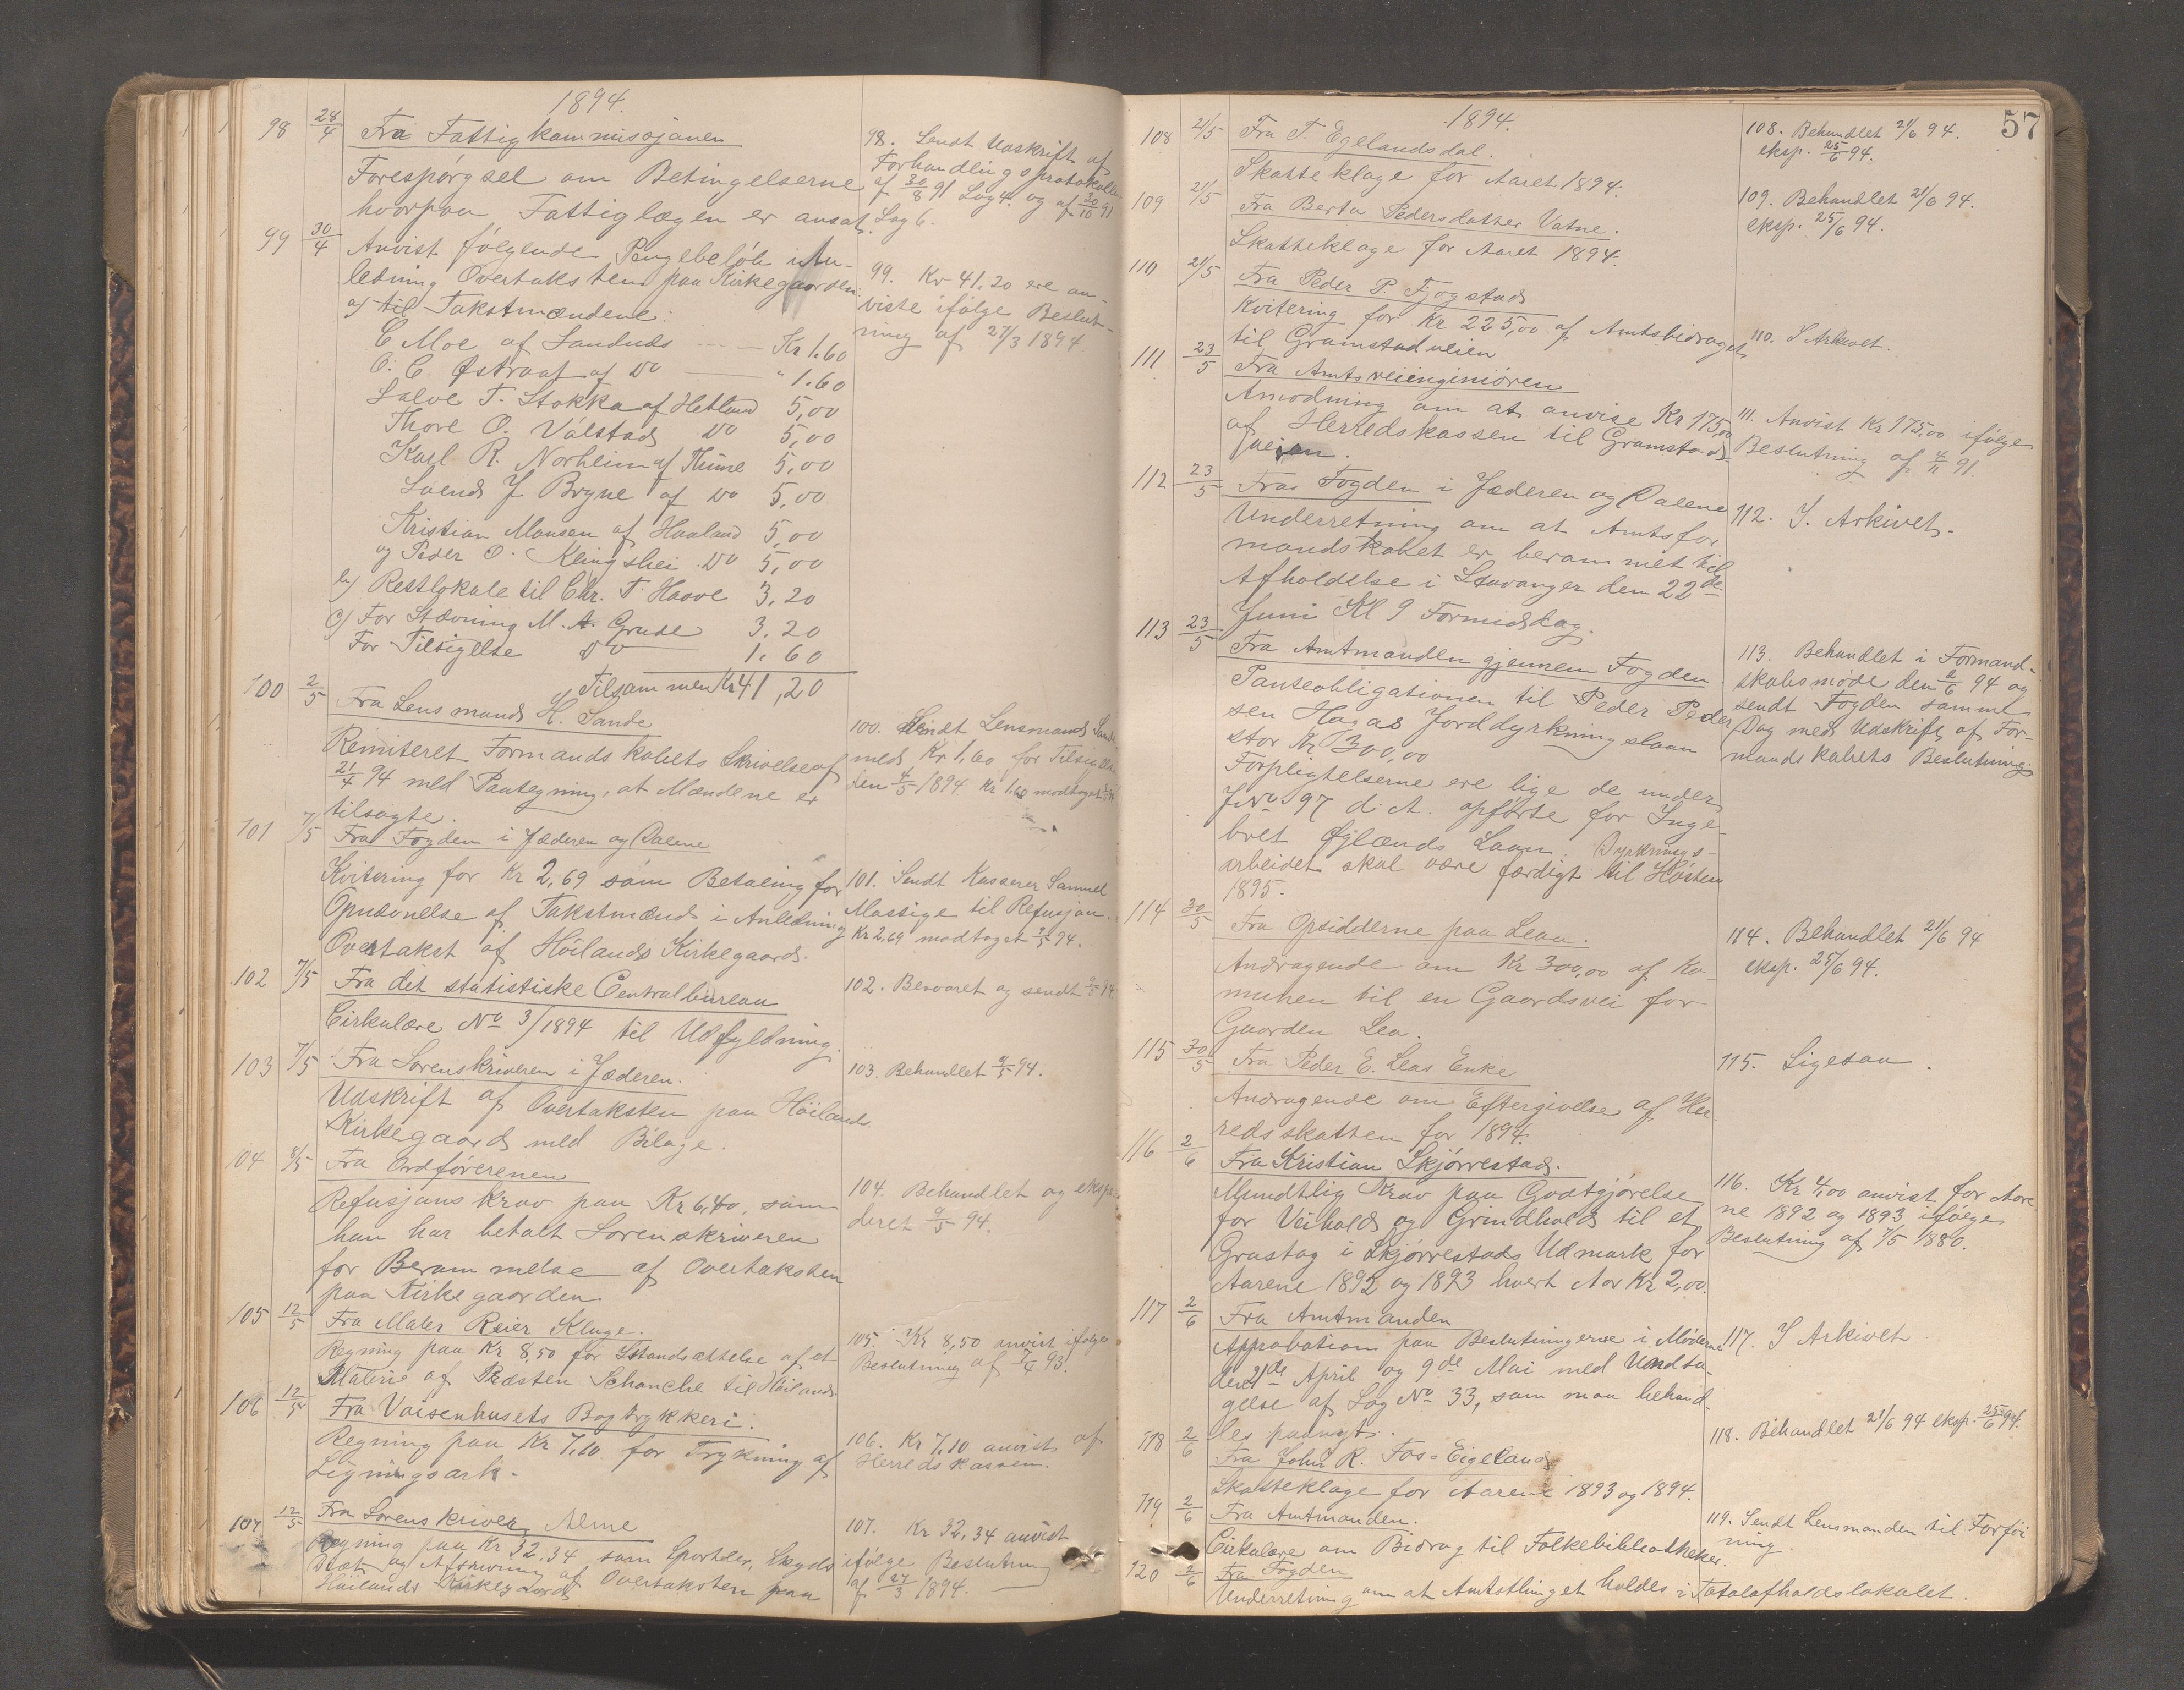 1894.
98 28/4 Fra Fattigkommissjonen
Forespörgsel om Betingelserne
hvorpaa Fattiglægen er ansat.
98. Sendt Udskrift af
Forhandlingsprotokollen
af 30/8 91 Sag 4. og af 30/10 91
Sag 6.
99 30/4 Anvist fölgende Pengebelöb i An-
ledning Overtaksten paa Kirkegaarden:
a) til Takstmændene:
C Moe af Sandnds — Kr 1.60
O. C. Østraat af Do — " 1.60
Salve T. Stokka af Hetland 5,00
Thore O. Válstad Do 5,00
Karl R. Norheim af Thime 5,00
Svend J Bryne af Do 5,00
Kristian Monsen af Haaland 5,00
og Peder O. Kleingshei Do 5,00
b) Restlokale til Chr. T. Haave 3,20
c) For Stævning M. A. Grude 3,20
For Tilsigelse Do 1.60
Tilsammen Kr 41,20
99. Kr 41.20 ere an-
viste ifölge Beslut-
ning af 27/3 1894
100 2/5 Fra Lensmand H. Sande
Remiteret Formandskabets Skrivelse af
21/4 94 med Paategning, at Mændene er
tilsagte.
100. Sendt Lensmand Sande
med Kr 1,60 for Tilsigelse
den 4/5 1894 Kr 1,60 modtaget
101 7/5 Fra Fogden i Jæderen og Dalene
Kvitering for Kr 2,69 som Betaling for
Opnævnelse af Takstmænd i Anledning
Overtakst af Höilands Kirkegaard.
101. Sendt Kasserer Samuel
Massige til Refusjon.
Kr 2,69 modtaget 9/5 94.
102 7/5 Fra det statistiske Centralbureau
Cirkulære No 3/1894 til Udfyldning.
102. Besvaret og sendt 9/5 94.
103 7/5 Fra Sorenskriveren i Jæderen.
Udskrift af Overtaksten paa Höiland
Kirkegaard med Bilage.
103. Behandlet 9/5 94.
104 8/5 Fra Ordföreren
Refusjons krav paa Kr 6,40, som
han har betalt Sorenskriveren
for Berammelse af Overtaksten
paa Kirkegaarden.
104. Behandlet og ekspe-
deret 9/5 94.
105 12/5 Fra Maler Reier Kluge.
Regning paa Kr 8,50 for Istandsættelse af et
Maleri af Præsten Schanche til Höiland
105. Kr 8,50 anvist ifölge
Beslutning af 93.
106 12/5 Fra Vaisenhusets Bogtrykkeri.
Regning paa Kr 7,10 for Trykning af
Ligningsark.
106. Kr 7,10 anvist af
Herredskassen.
107 12/5 Fra Sorenskriver Arne
Regning paa Kr 32,34 som Sportler, Skyds
Diæt og Afskrivning af Overtaksten paa
Höilands Kirkegaard
107. Kr 32,34 anvist
ifölge Beslutning
af 27/3 1894.
57
1894.
108 21/5 Fra T. Egelandsdal.
Skatteklage for Aaret 1894.
108. Behandlet 21/6 94.
eksp. 25/6 94.
109 21/5 Fra Berta Pedersdatter Vatne.
Skatteklage for Aaret 1894.
109. Behandlet 21/6 94.
eksp. 25/6 94.
110 21/5 Fra Peder P. Fjogstad
Kvitering for Kr 225,00 af Amtsbidraget
til Gramstadveien
110. I Arkivet.
111 23/5 Fra Amtsveiingeniören
Anmodning om at anvise Kr 175,00
af Herredskassen til Gramstad-
veien.
111. Anvist Kr 175,00 ifölge
Beslutning af 4/11 91.
112 23/5 Fra Fogden i Jæderen og Dalene
Underretning om at Amtsfor
mandskabet er berammet til
Afholdelse i Stavanger den 22de
Juni Kl 9 Formiddag.
112. I Arkivet.
113 23/5 Fra Amtmanden gjennem Fogden.
Panteobligationen til Peder Peder
sen Hagas Jorddyrkningslaan
stor Kr 300,00
Forpligtelserne ere lige de under
J No 97 d. A. opförte for Inge-
bret Øglænds Laan. Dyrknings-
arbeidet skal være færdigt til Hösten
1895.
113. Behandlet i Formand-
skabsmöde den 2/6 94 og
sendt Fogden samme
Dag med Udskrift af For-
mandskabets Beslutning
114 30/5 Fra Opsidderne paa Leaa.
Andragende om Kr 300,00 af Ko-
munen til en Gaardsvei for
Gaarden Lea.
114. Behandlet 21/6 94
eksp. 25/6 94.
115 30/5 Fra Peder E. Leas Enke
Andragende om Eftergivelse af Her-
redsskatten for 1894.
115. Ligesaa.
116 2/6 Fra Kristian Skjörrestad.
Mundtlig Krav paa Godtgjörelse
for Veihold og Grindhold til et
Grustag i Skjörrestads Udmark for
Aarene 1892 og 1893 hvert Aar Kr 2,00.
116. Kr 4,00 anvist for Aare
ne 1892 og 1893 ifölge
Beslutning af 7/5 1880.
117 2/6 Fra Amtmanden
Approbation paa Beslutningerne i Möderne
den 21de April og 9de Mai med Undta-
gelse af Sag No 33, som maa behand-
les paanyt.
117. I Arkivet.
118 2/6 Fra John R. Fos-Eigeland
Skatteklage for Aarene 1893 og 1894.
118. Behandlet 21/6 94 eksp. 25/6 94.
119 2/6 Fra Amtmanden.
Cirkulære om Bidrag til Folkebibliotheker.
119. Sendt Lensmanden til Forföi
ning.
120 2/6 Fra Fogden
Underretning om at Amtsthinget holdes i Totalafholdslokalet.